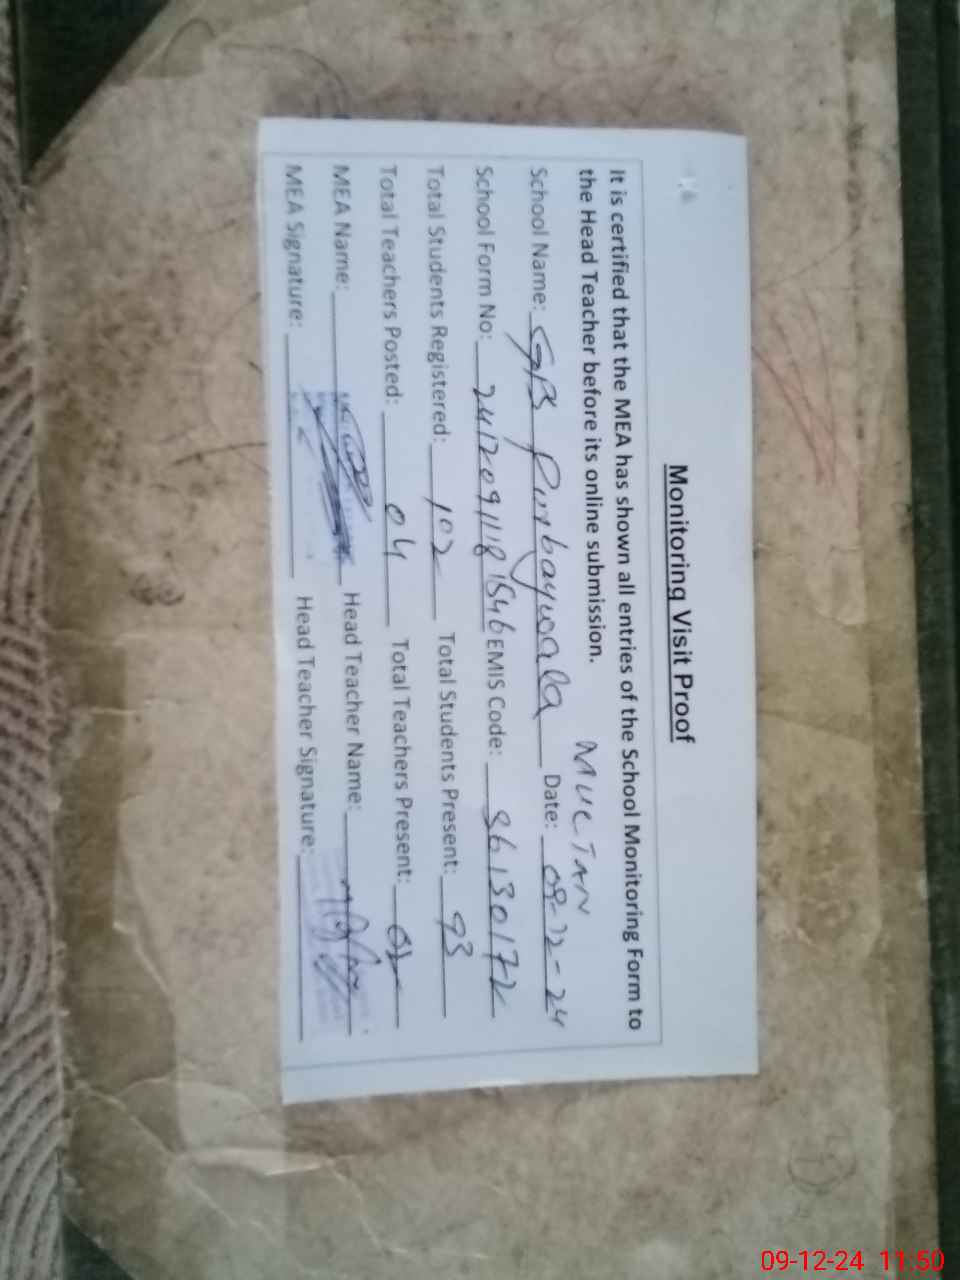 Monitoring Visit Proof
It is certified that the MEA has shown all entries of the School Monitoring Form to
the Head Teacher before its online submission.
MULTAN
School Name: Purbaywala Date: 09-12-24
School Form No: 24120911181546 EMIS Code: 36130172
Total Students Registered: 102 Total Students Present: 93
Total Teachers Posted: 04 Total Teachers Present:
MEA Name: Head Teacher Name:
MEA Signature: Head Teacher Signature:
09-12-24 11:50